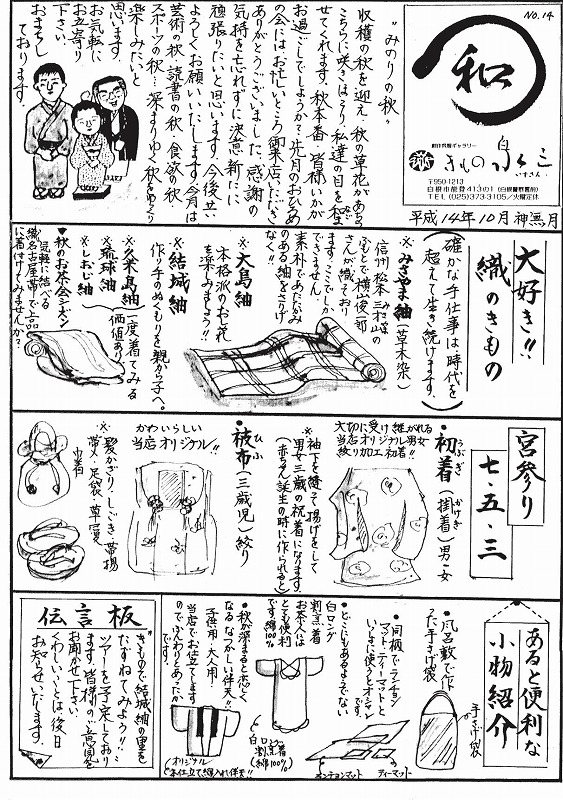 NO.14
和
創作呉服ギャラリー
きもの泉三
いずさん
〒950-1213
白根市能登413の1(白根警察署前)
TEL(025)373-3105/火曜定休
平成14年10月神無月
"みのりの秋"
収穫の秋を迎え、秋の草花があち
こちらに咲きほこり、私達の目を楽しま
せてくれます。秋本番、皆様いかが
お過ごしでしょうか?先月のおひろめ
の会にはお忙しいところ御来店いただき
ありがとうございました。感謝の
気持を忘れずに決意新たに
頑張りたいと思います。今後共
よろしくお願いいたします。今月は
芸術の秋、読書の秋、食欲の秋
スポーツの秋…深まりゆく秋をゆっくり
楽しみたいと
思います。
お気軽に
お立寄り
下さい。
お待ちし
ております。
大好き!!
織のきもの
(確かな手仕事は時代を
超えて生き続けます。)
※みさやま紬(草木染)
信州松本三才山の
ふもとで横山俊一郎
さんが織っており
ます。ここでしか
できません。
素朴であたたかみ
のある紬をさりげ
なく!!
※大島紬
本格派のおしゃれ
を楽しみましょう!!
※結城紬
作り手のぬくもりを親から子へ。
※久米島紬
※琉球紬
※しおじ紬
一度着てみる
価値あり
♥秋のお茶会シーズン
気軽に結べる
織名古屋帯で上品
に着付けてみませんか?
宮参り
七・五・三
•初着(掛着)男・女
うぶぎ
かけぎ
大切に受け継がれる
当店オリジナル男女
絞り加工初着!!
※袖下を縫って揚げをして
男女三歳の祝着になります。
(赤ちゃん誕生の時に作られると)
•被布(三歳児)絞り
ひふ
かわいらしい
当店オリジナル!!
※髪かざり・しごき・帯揚
帯〆・足袋・草履・
巾着
あると便利な
小物紹介
お茶
•風呂敷で作
った手さげ袋
手さげ袋
•同柄でランチョン
マット・ティーマットと
いっしょに使うとオシャレ
です。
ランチョンマット
ティーマット
•どこにもあるようでない
白ロング
割烹着
お茶人には
とても便利
です。綿100%
白ロング
割烹着
(綿100%)
•秋が深まると恋しく
なるなつかしい伴天!!
子供用・大人用・
当店でお仕立てします
のでふんわりとあったか
です。
オリジナル
(本仕立て綿入れ伴天!!)
伝言板
"きもので結城紬の里を
たずねてみよう!!"
ツアーを予定しており
ます。皆様の御意見を
お聞かせ下さい。
くわしいことは後日
お知らせいたします。